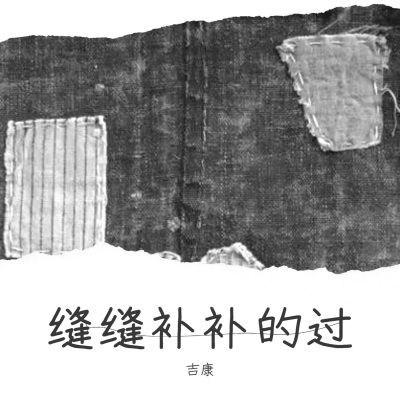 缝缝补补的过
吉康